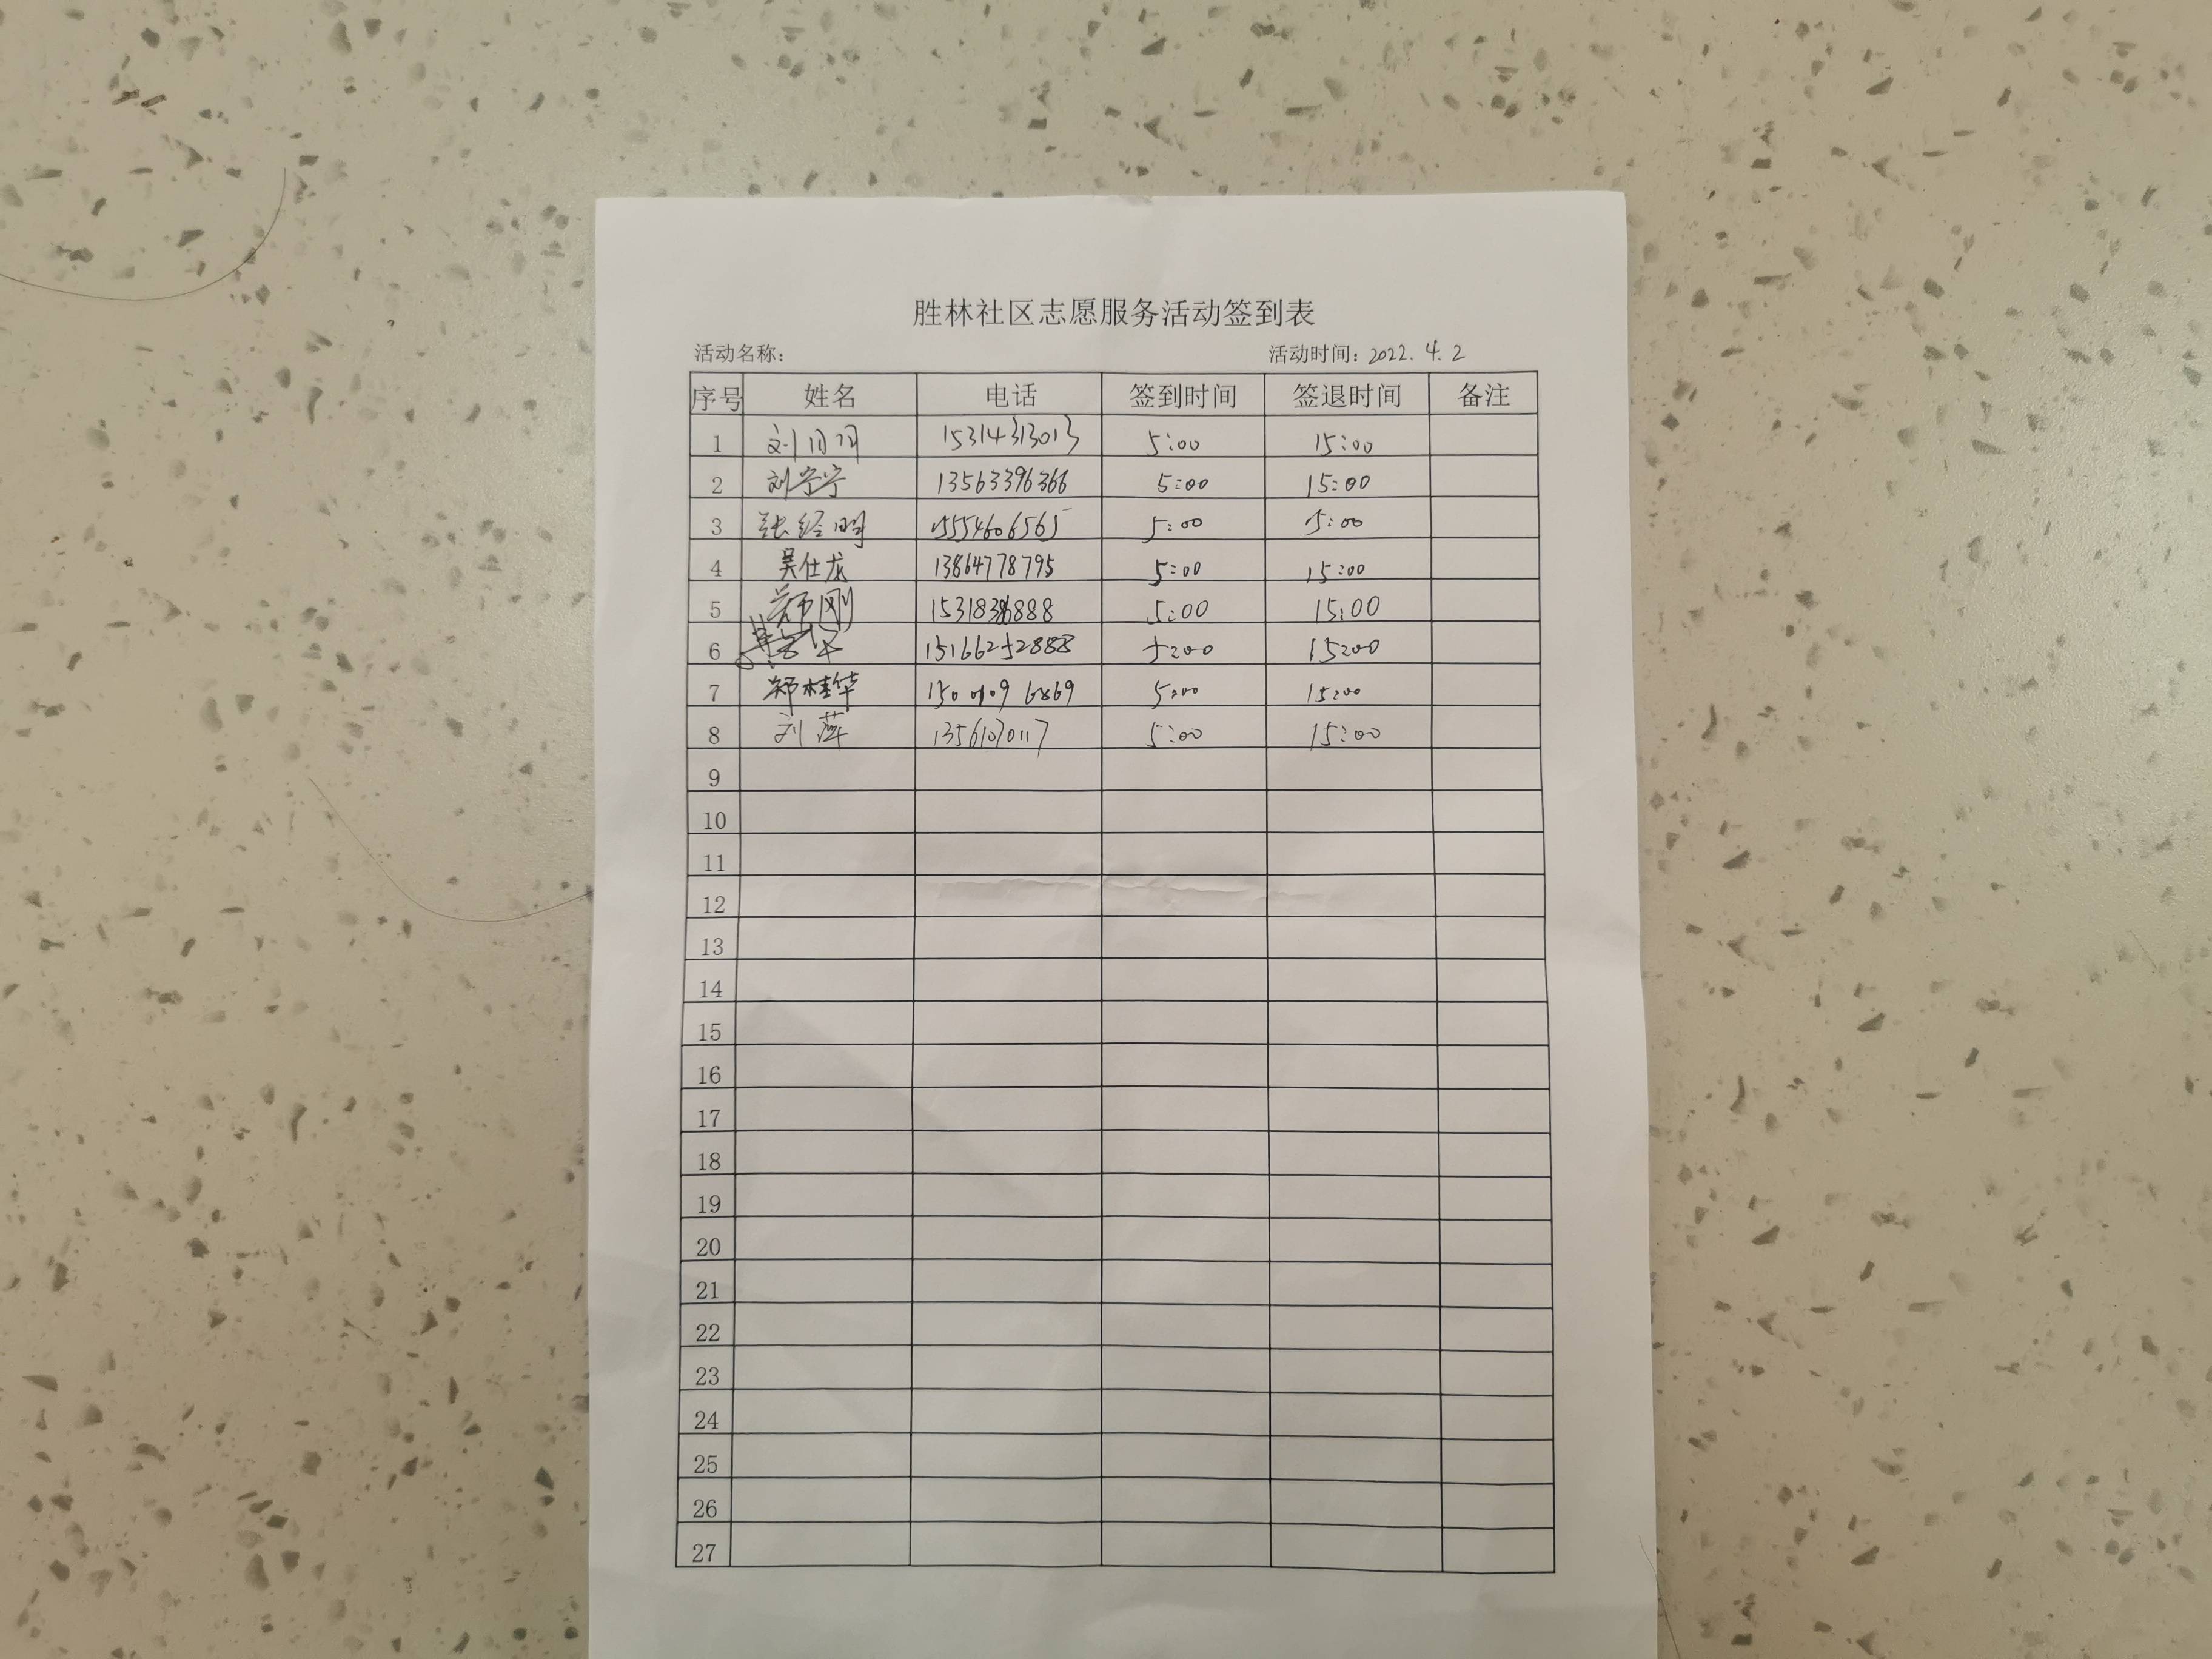 胜林社区志愿服务活动签到表
活动名称： 活动时间：2022.4.2
序号 姓名 电话 签到时间 签退时间 备注
1 刘 15314313013 5:00 15:00
2 刘宁宁 13563396366 5:00 15:00
3 张经明 15554606565 5:00 15:00
4 吴仕龙 13864778795 5:00 15:00
5 郑刚 5:00 15:00
6 15166252888 5:00 15:00
7 郑桂华 5:00 15:00
8 刘萍 5:00 15:00
9
10
11
12
13
14
15
16
17
18
19
20
21
22
23
24
25
26
27